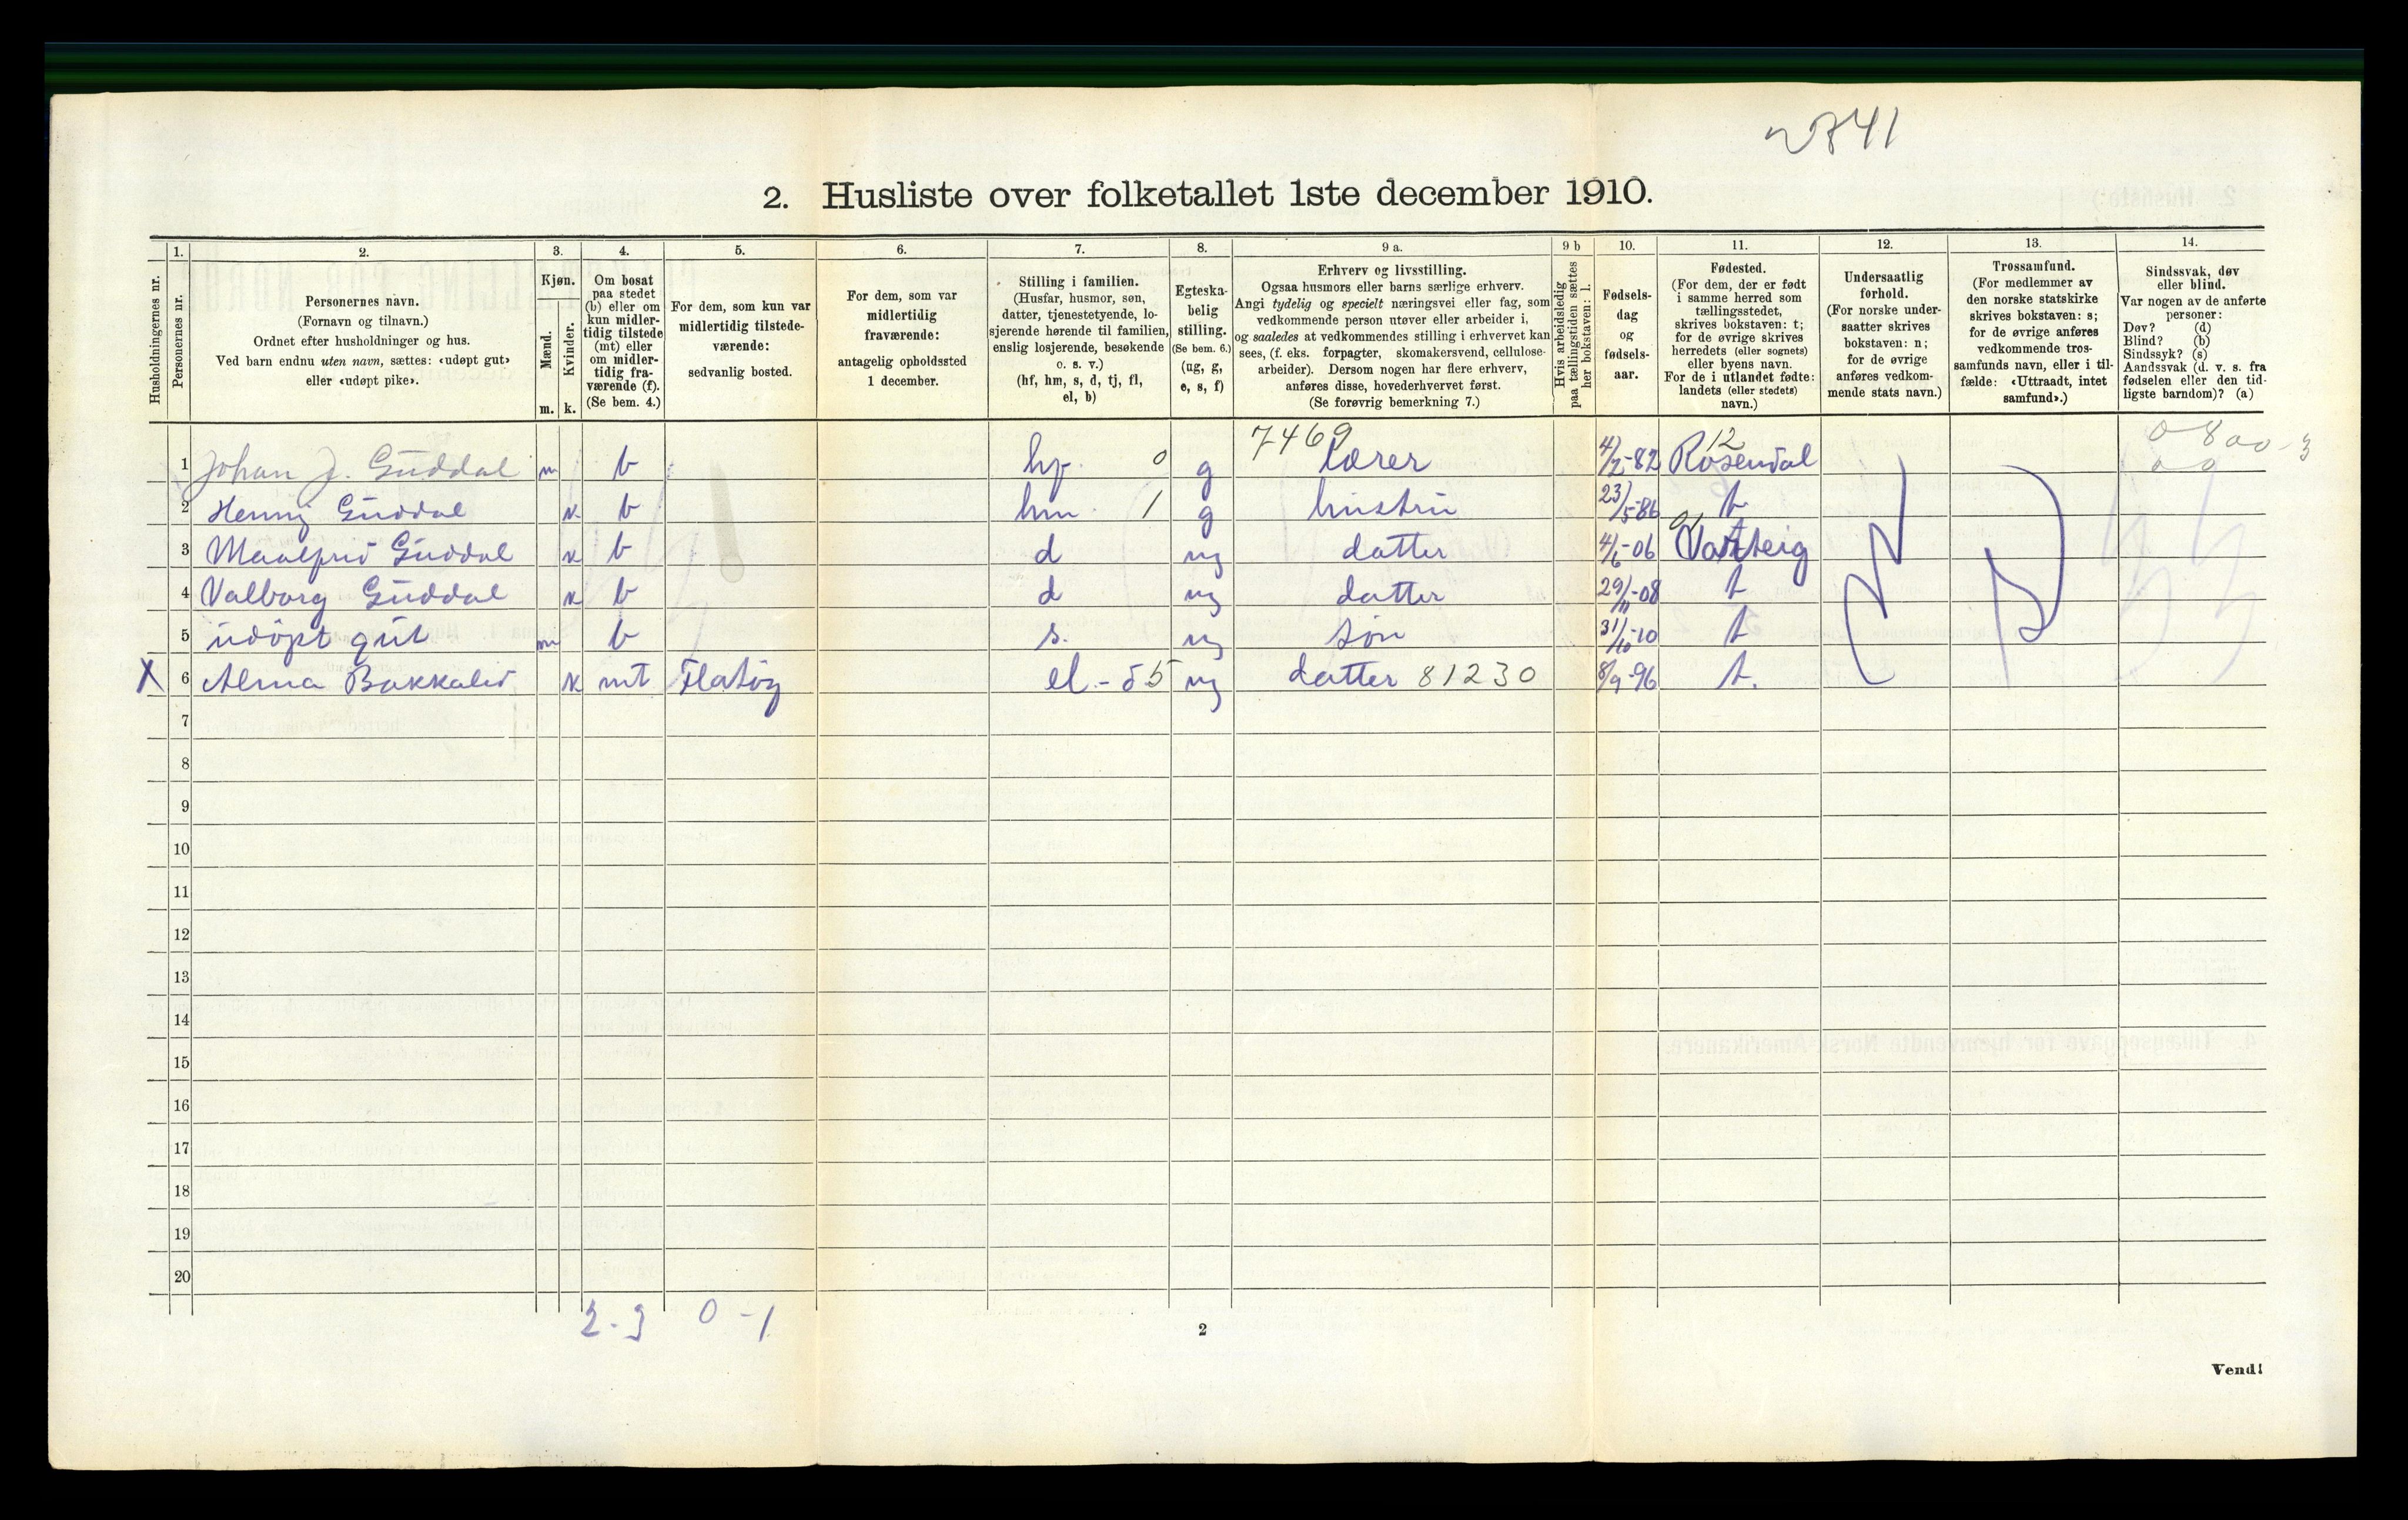 2741
2. Husliste over folketallet 1ste december 1910.
1. 2. 3. 4. 5. 6. 7. 8. 9 a. 9 b 10. 11. 12. 13. 14.
Husholdningernes nr.
Personernes nr.
Personernes navn.
(Fornavn og tilnavn.)
Ordnet efter husholdninger og hus.
Ved barn endnu uten navn, sættes: «udøpt gut»
eller «udøpt pike».
Kjøn.
Mænd.
Kvinder.
m. k.
Om bosat
paa stedet
(b) eller om
kun midler-
tidig tilstede
(mt) eller
om midler-
tidig fra-
værende (f).
(Se bem. 4.)
For dem, som kun var
midlertidig tilstede-
værende:
sedvanlig bosted.
For dem, som var
midlertidig
fraværende:
antagelig opholdssted
1 december.
Stilling i familien.
(Husfar, husmor, søn,
datter, tjenestetyende, lo-
sjerende hørende til familien,
enslig losjerende, besøkende
o. s. v.)
(hf, hm, s, d, tj, fl,
el, b)
Egteska-
belig
stilling.
(Se bem. 6.)
(ug, g,
e, s, f)
Erhverv og livsstilling.
Ogsaa husmors eller barns særlige erhverv.
Angi tydelig og specielt næringsvei eller fag, som
vedkommende person utøver eller arbeider i,
og saaledes at vedkommendes stilling i erhvervet kan
sees, (f. eks. forpagter, skomakersvend, cellulose-
arbeider). Dersom nogen har flere erhverv,
anføres disse, hovederhvervet først.
(Se forøvrig bemerkning 7.)
Hvis arbeidsledig
paa tællingstiden sættes
her bokstaven: l.
Fødsels-
dag
og
fødsels-
aar.
Fødested.
(For dem, der er født
i samme herred som
tællingsstedet,
skrives bokstaven: t;
for de øvrige skrives
herredets (eller sognets)
eller byens navn.
For de i utlandet fødte:
landets (eller stedets)
navn.)
Undersaatlig
forhold.
(For norske under-
saatter skrives
bokstaven: n;
for de øvrige
anføres vedkom-
mende stats navn.)
Trossamfund.
(For medlemmer av
den norske statskirke
skrives bokstaven: s;
for de øvrige anføres
vedkommende tros-
samfunds navn, eller i til-
fælde: «Uttraadt, intet
samfund».)
Sindssvak, døv
eller blind.
Var nogen av de anførte
personer:
Døv? (d)
Blind? (b)
Sindssyk? (s)
Aandssvak (d. v. s. fra
fødselen eller den tid-
ligste barndom)? (a)
7469 12 0800-3
1 Johan J. Guddal m b hf. 0 g lærer 4/2-82 Rosendal 00
2 Henny Guddal k b hm 1 g hustru 23/5-86 t
3 Maalfrid Guddal k b d ug datter 4/6-06 Varteig
4 Valborg Guddal k b d ug datter 29/11-08 t
5 udøpt gut m b s. ug søn 31/10-10 t
X 6 Alma Bakkelid k mt Flatøy el - 55 ug datter 81230 8/9-96 t.
n s
7
8
9
10
11
12
13
14
15
16
17
18
19
20
2-3 0-1
2
Vend!